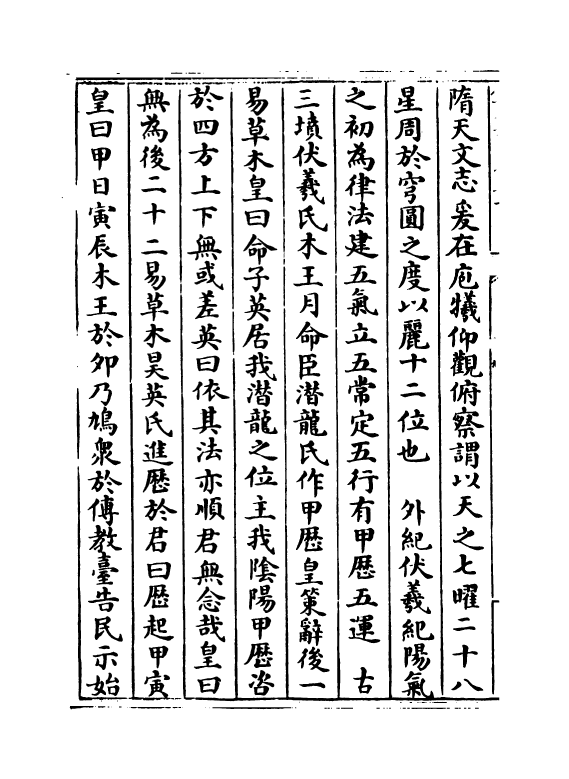 隋天文志爰在庖犧仰觀俯察謂以天之七曜二十八
星周於穹圓之度以麗十二位也　外紀伏羲紀陽氣
之初為律法建五氣立五常定五行有甲厯五運　古
三墳伏羲氏木王月命臣潛龍氏作甲厯皇策辭後一
易草木皇曰命子英居我潛龍之位主我陰陽甲厯咨
於四方上下無或差英曰依其法亦順君無念哉皇曰
無為後二十二易草木昊英氏進厯於君曰厯起甲寅
皇曰甲日寅辰木王於夘乃鳩衆於傅教臺告民示始